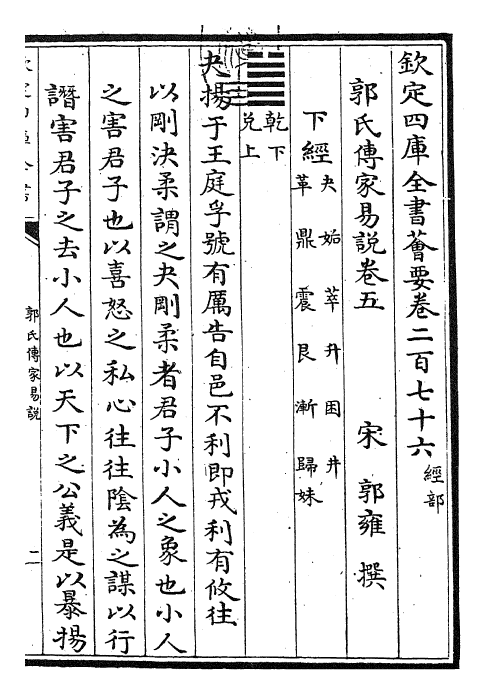 欽定四庫全書薈要卷二百七十六 經部
郭氏傳家易説卷五 宋 郭雍 撰
下經 夬 姤 萃 升 困 井
革 鼎 震 艮 漸 歸妹
乾下
兑上
夬揚于王庭孚號有厲告自邑不利即戎利有攸往
以剛決柔謂之夬剛柔者君子小人之象也小人
之害君子也以喜怒之私心往往陰為之謀以行
譖害君子之去小人也以天下之公義是以暴揚
郭氏傳家易説
二